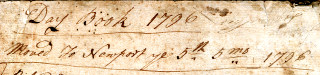 Day Book 1796
Moved To Newport ye 5th 5mo 1796